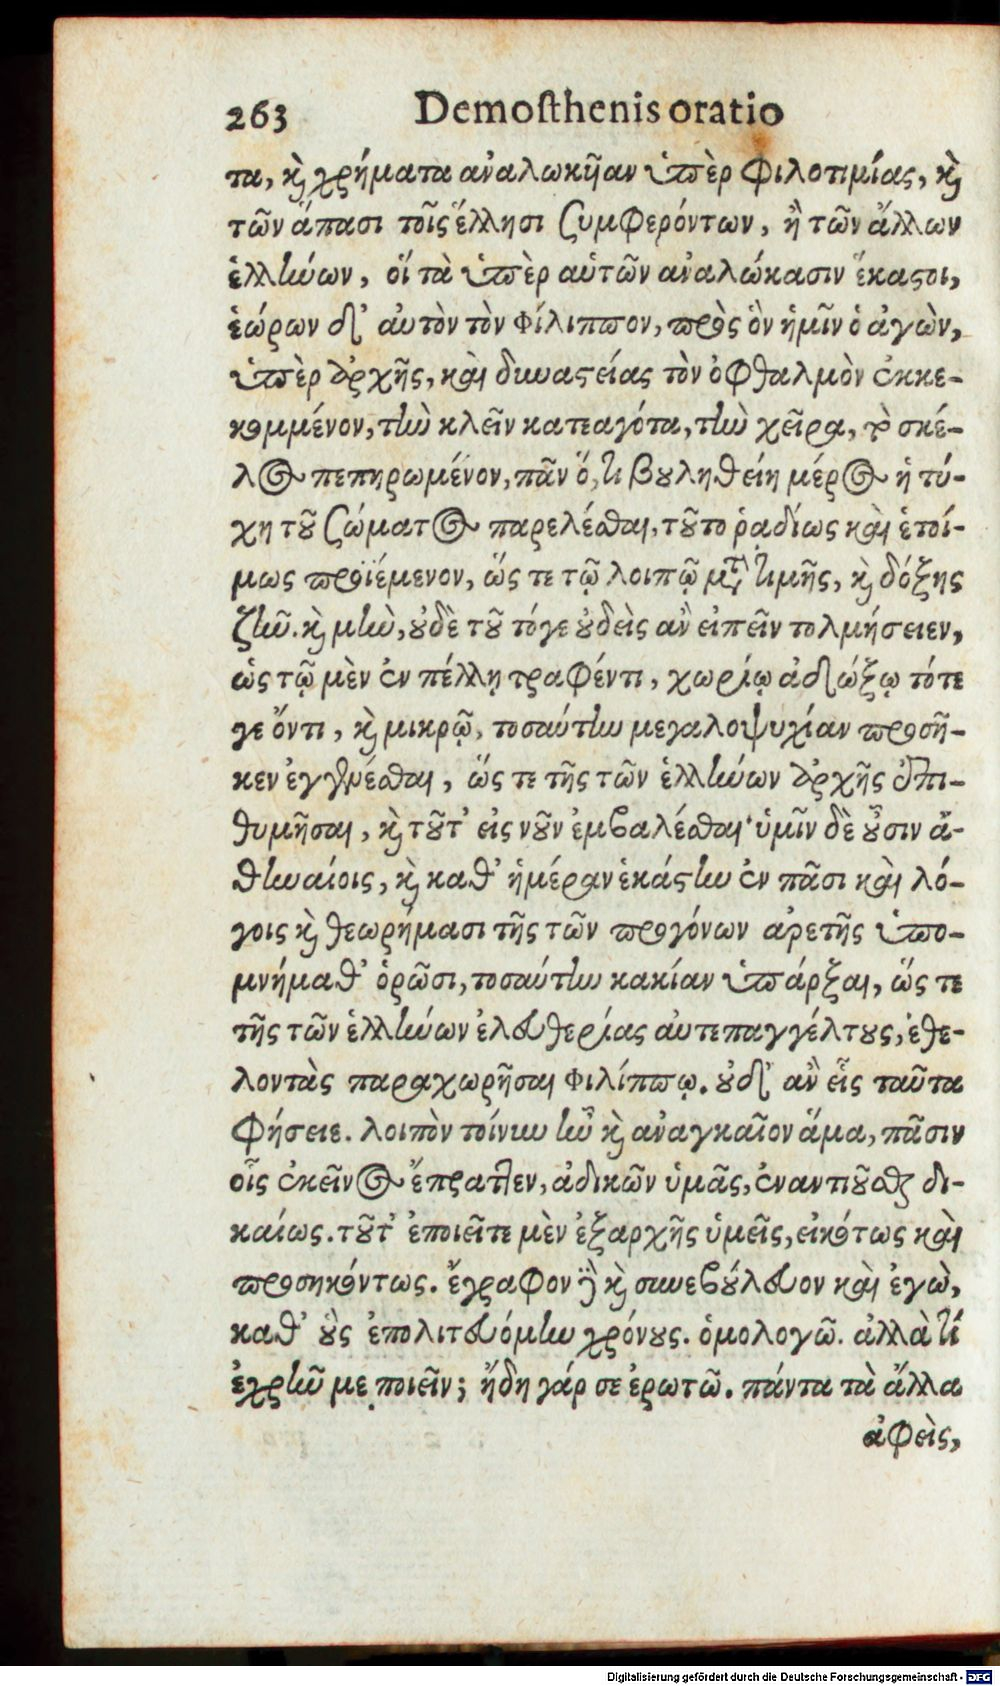 263 Demosthenis oratio
τα, καὶ χρήματα ἀναλωκυῖαν ὑπὲρ φιλοτιμίας, καὶ
τῶν ἅπασι τοῖς ἕλλησι συμφερόντων, ἢ τῶν ἄλλων
ἑλλήνων, οἵ τὰ ὑπὲρ αὑτῶν ἀναλώκασιν ἕκαστοι,
ἑώρων δ' αὐτὸν τὸν Φίλιππον, πρὸς ὃν ἡμῖν ὁ ἀγὼν,
ὑπὲρ ἀρχῆς, καὶ δυναστείας τὸν ὀφθαλμὸν ἐκκε-
κομμένον, τὴν κλεῖν κατεαγότα, τὴν χεῖρα, τὸ σκέ-
λος πεπηρωμένον, πᾶν ὅ, τι βουληθείη μέρος ἡ τύ-
χη τοῦ σώματος παρελέσθαι, τοῦτο ῥαδίως καὶ ἑτοί-
μως προϊέμενον, ὥς τε τῷ λοιπῷ μετὰ τιμῆς, καὶ δόξης
ζῆν. καὶ μὴν, οὐδὲ τοῦ τόγε οὐδεὶς ἂν εἰπεῖν τολμήσειεν,
ὡς τῷ μὲν ἐν πέλλῃ τραφέντι, χωρίῳ ἀδόξῳ τότε
γε ὄντι, καὶ μικρῷ, τοσαύτην μεγαλοψυχίαν προσῆ-
κεν ἐγγενέσθαι, ὥς τε τῆς τῶν ἑλλήνων ἀρχῆς ἐπι-
θυμῆσαι, καὶ τοῦτ' εἰς νοῦν ἐμβαλέσθαι· ὑμῖν δὲ οὖσιν ἀ-
θηναίοις, καὶ καθ' ἡμέραν ἑκάστην ἐν πᾶσι καὶ λό-
γοις καὶ θεωρήμασι τῆς τῶν προγόνων ἀρετῆς ὑπο-
μνήμαθ' ὁρῶσι, τοσαύτην κακίαν ὑπάρξαι, ὥς τε
τῆς τῶν ἑλλήνων ἐλευθερίας αὐτεπαγγέλτους, ἐθε-
λοντὰς παραχωρῆσαι Φιλίππῳ. οὐδ' ἂν εἷς ταῦτα
φήσειε. λοιπὸν τοίνυν ἦν καὶ ἀναγκαῖον ἅμα, πᾶσιν
οἷς ἐκεῖνος ἔπραττεν, ἀδικῶν ὑμᾶς, ἐναντιοῦσθαι δι-
καίως. τοῦτ' ἐποιεῖτε μὲν ἐξαρχῆς ὑμεῖς, εἰκότως καὶ
προσηκόντως. ἔγραφον δὲ καὶ συνεβούλευον καὶ ἐγὼ,
καθ' οὓς ἐπολιτευόμην χρόνους. ὁμολογῶ. ἀλλὰ τί
ἐχρῆν με ποιεῖν; ἤδη γάρ σε ἐρωτῶ. πάντα τὰ ἄλλα
ἀφεὶς,
Digitalisierung gefördert durch die Deutsche Forschungsgemeinschaft - DFG